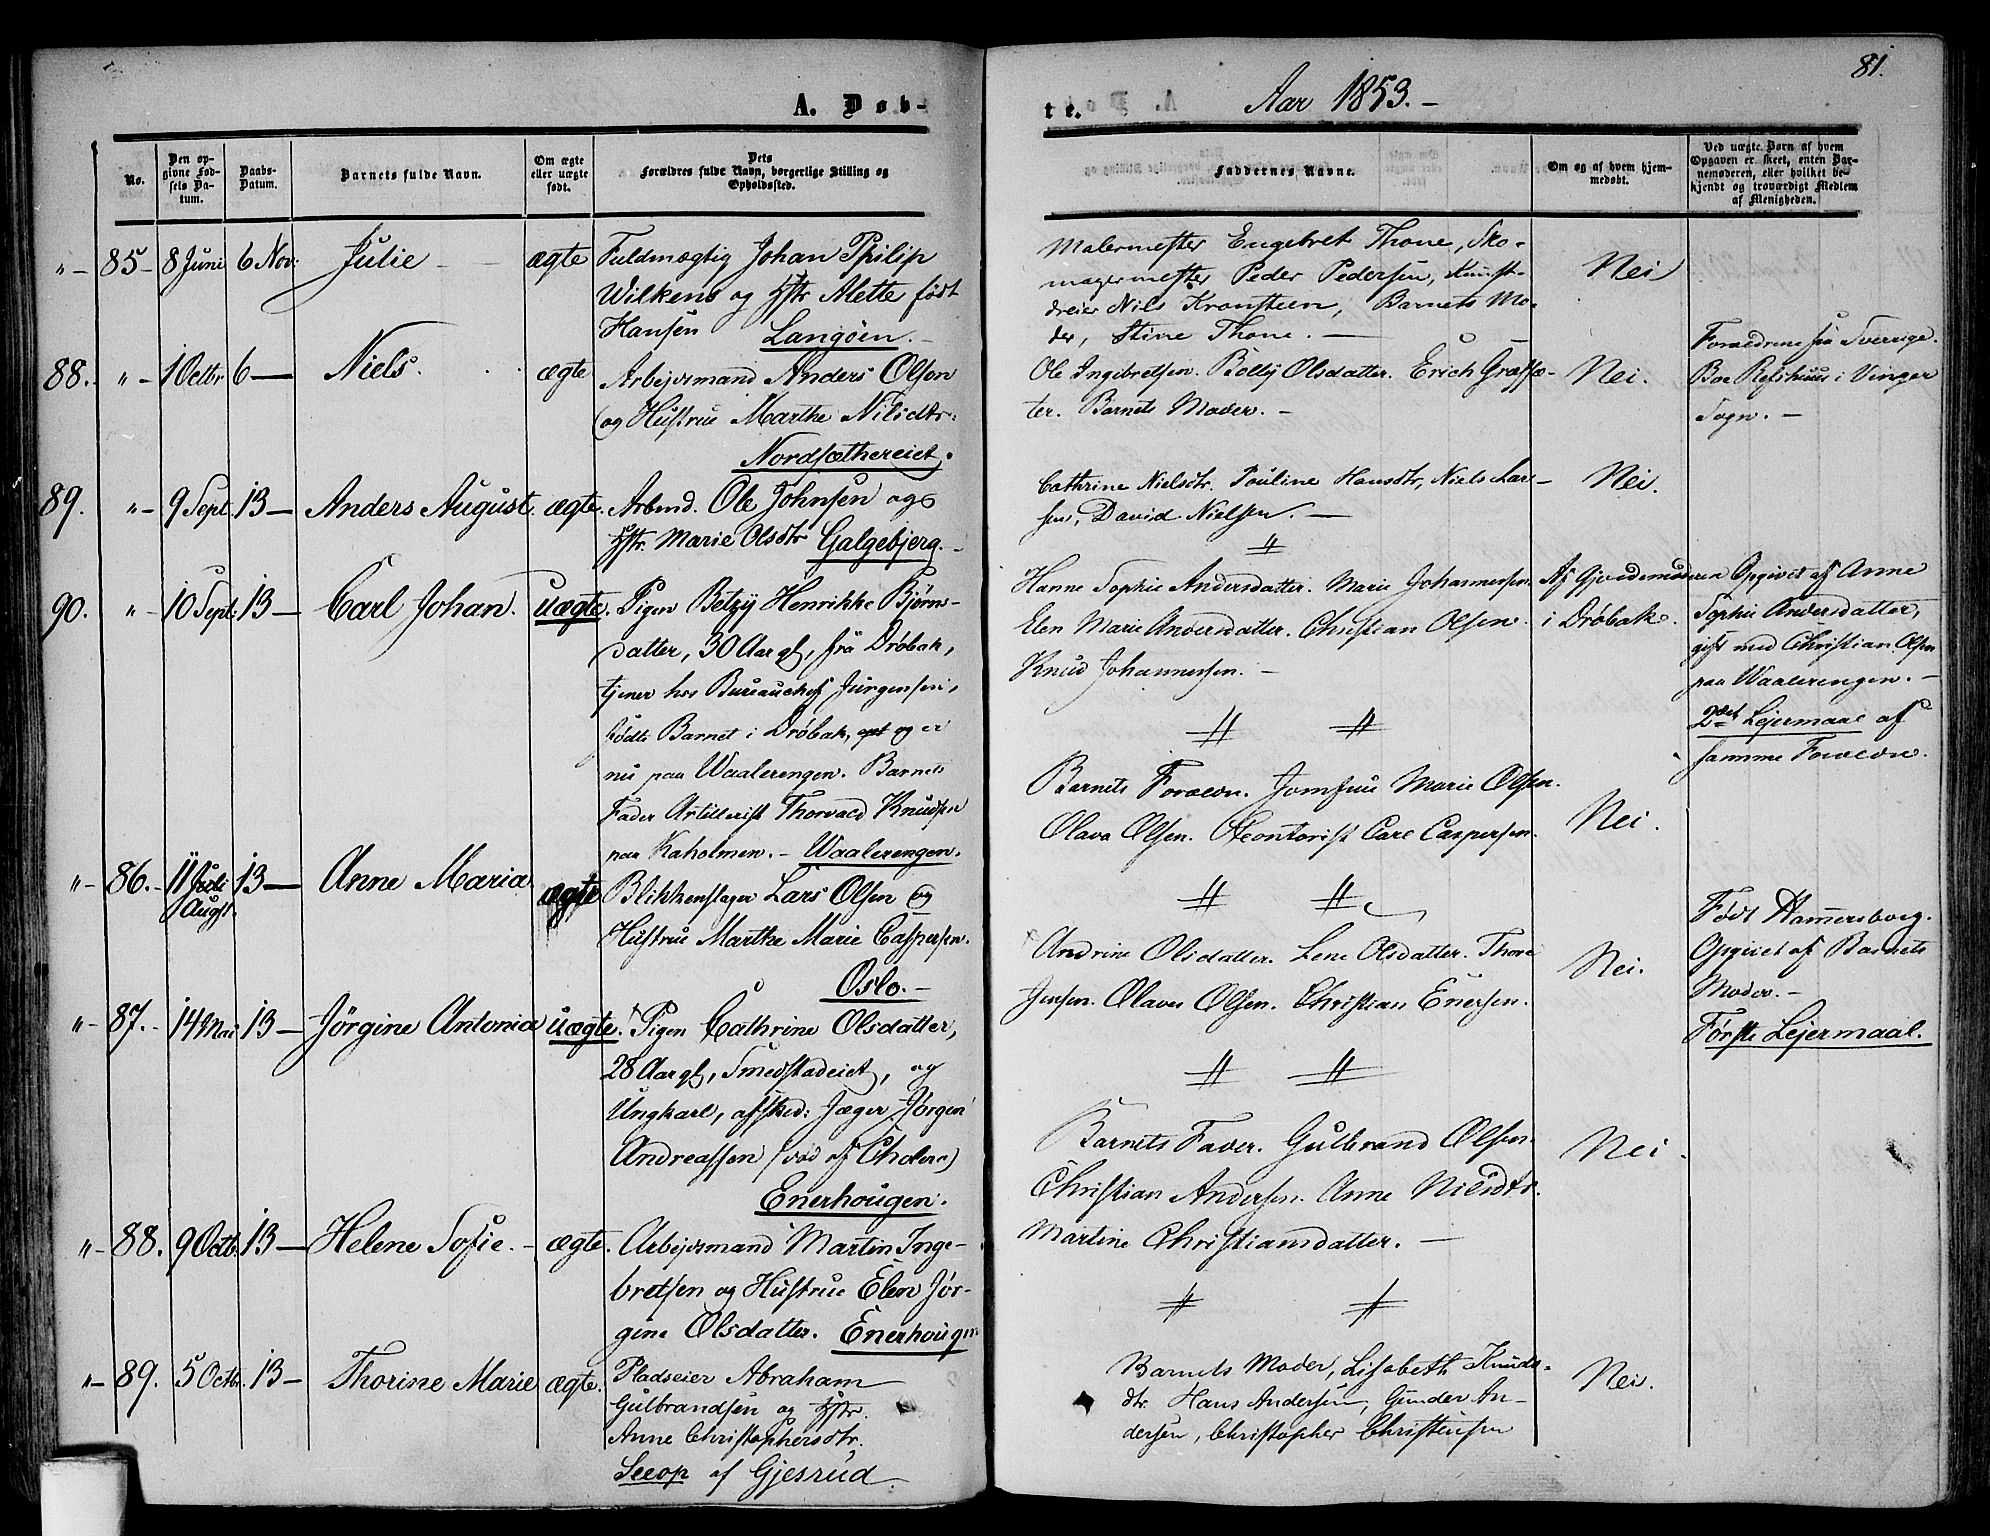 A. Døb-
No.
Den op-
givne Fød-
sels Da-
tum.
Daabs-
Datum.
Barnets fulde Navn.
Om ægte
eller uægte
født.
Dets
Forældres fulde Navn, borgerlige Stilling og
Opholdssted.
"- 85- 8 Juni 6 Nov: Julie - ægte Fuldmægtig Johan Philip
Wilkens og Hstr Alette født
Hansen Langöen.-
88. "- 1 Octbr 6- Niels. ægte Arbejdsmand Anders Olsen
og Hustrue Marthe Nilsdtr.
Nordsæthereiet.
89. "- 9 Sept. 13- Anders August. ægte. Arbmd. Ole Johnsen og
Hstr. Marie Olsdtr Galgebjerg.-
90. "- 10 Sept: 13- Carl Johan. uægte. Pigen Betzy Henrikke Bjørns-
datter, 30 Aar gl, fra Drøbak,
tjener hos Bureauchef Jürgensen,
födte Barnet i Drøbak, og er
nu paa Waalerengen. Barnets
Fader Artillerist Thorvald Knudsen
paa Kaholmen.- Waalerengen.
"- 86.- 11 Juli 13- Anne Maria ægte Blikkenslager Lars Olsen og
Augst.
Hustrue Marthe Marie Caspersen.
Oslo.-
"- 87.- 14 Mai 13- Jørgine Antonia uægte. Pigen Cathrine Olsdatter,
28 Aar gl, Smedstadeiet, og
Ungkarl, afsked: Jæger Jørgen
Andreassen (død af Cholera)
Enerhougen.
"- 88. 9 Octb. 13- Helene Sofie.- ægte. Arbejdsmand Martin Inge-
bretsen og Hustrue Elen Jør-
gine Olsdatter. Enerhougen
"- 89. 5 Octbr. 13- Thorine Marie ægte. Pladseier Abraham
Gulbrandsen og Hstr.
Anne Christophersdtr.
Sleop af Gjesrud.
81.
te. Aar 1853.-
Faddernes Navne.
Om og af hvem hjem-
medøbt.
Ved uægte Børn af hvem
Opgaven er skeet, enten Bar-
nemoderen, eller hvilket be-
kjendt og troværdigt Medlem
af Menigheden.
Malermester Engebret Thone, Sko-
magermester Peder Pedersen, Kunst-
dreier Nils Kronsteen, Barnets Mo-
der, Stine Thone.-
Nei
Ole Ingebretsen. Bolly Olsdatter. Erich Græssæ-
ter. Barnets Moder.-
Nei.
Forældrene fra Sverrige.
Boe Refshuus i Vinger
Sogn.-
Cathrine Nielsdtr, Pauline Hansdtr, Niels Lar-
sen, David Nielsen.-
Nei.
"
Hanne Sophie Andersdatter. Marie Johannessen.
Elen Marie Andersdatter. Christian Olsen.
Knud Johannessen.-
Af Gjordemoderen
i Drøbak.
Opgivet af Anne
Sophie Andersdatter,
gift med Christian Olsen
paa Waalerengen.-
2det Lejermaal af
samme Forældre.
" "
Barnets Forældre. Jomfrue Marie Olsen.
Olava Olsen. Contorist Carl Caspersen.
Nei.
" "
Andrine Olsdatter. Lene Olsdatter. Thore
Jensen. Olaves Olsen. Christian Enersen.
Nei.
Født Hammersborg.
Opgivet af Barnets
Moder.-
Første Lejermaal.
" "
Barnets Fader. Gulbrand Olsen.
Christian Andersen. Anne Nilsdtr.
Martine Christiansdatter.-
Nei.
" "
Barnets Moder, Lisabeth Knuds-
dtr. Hans Andersen, Gunder An-
dersen, Christopher Christensen
Nei.